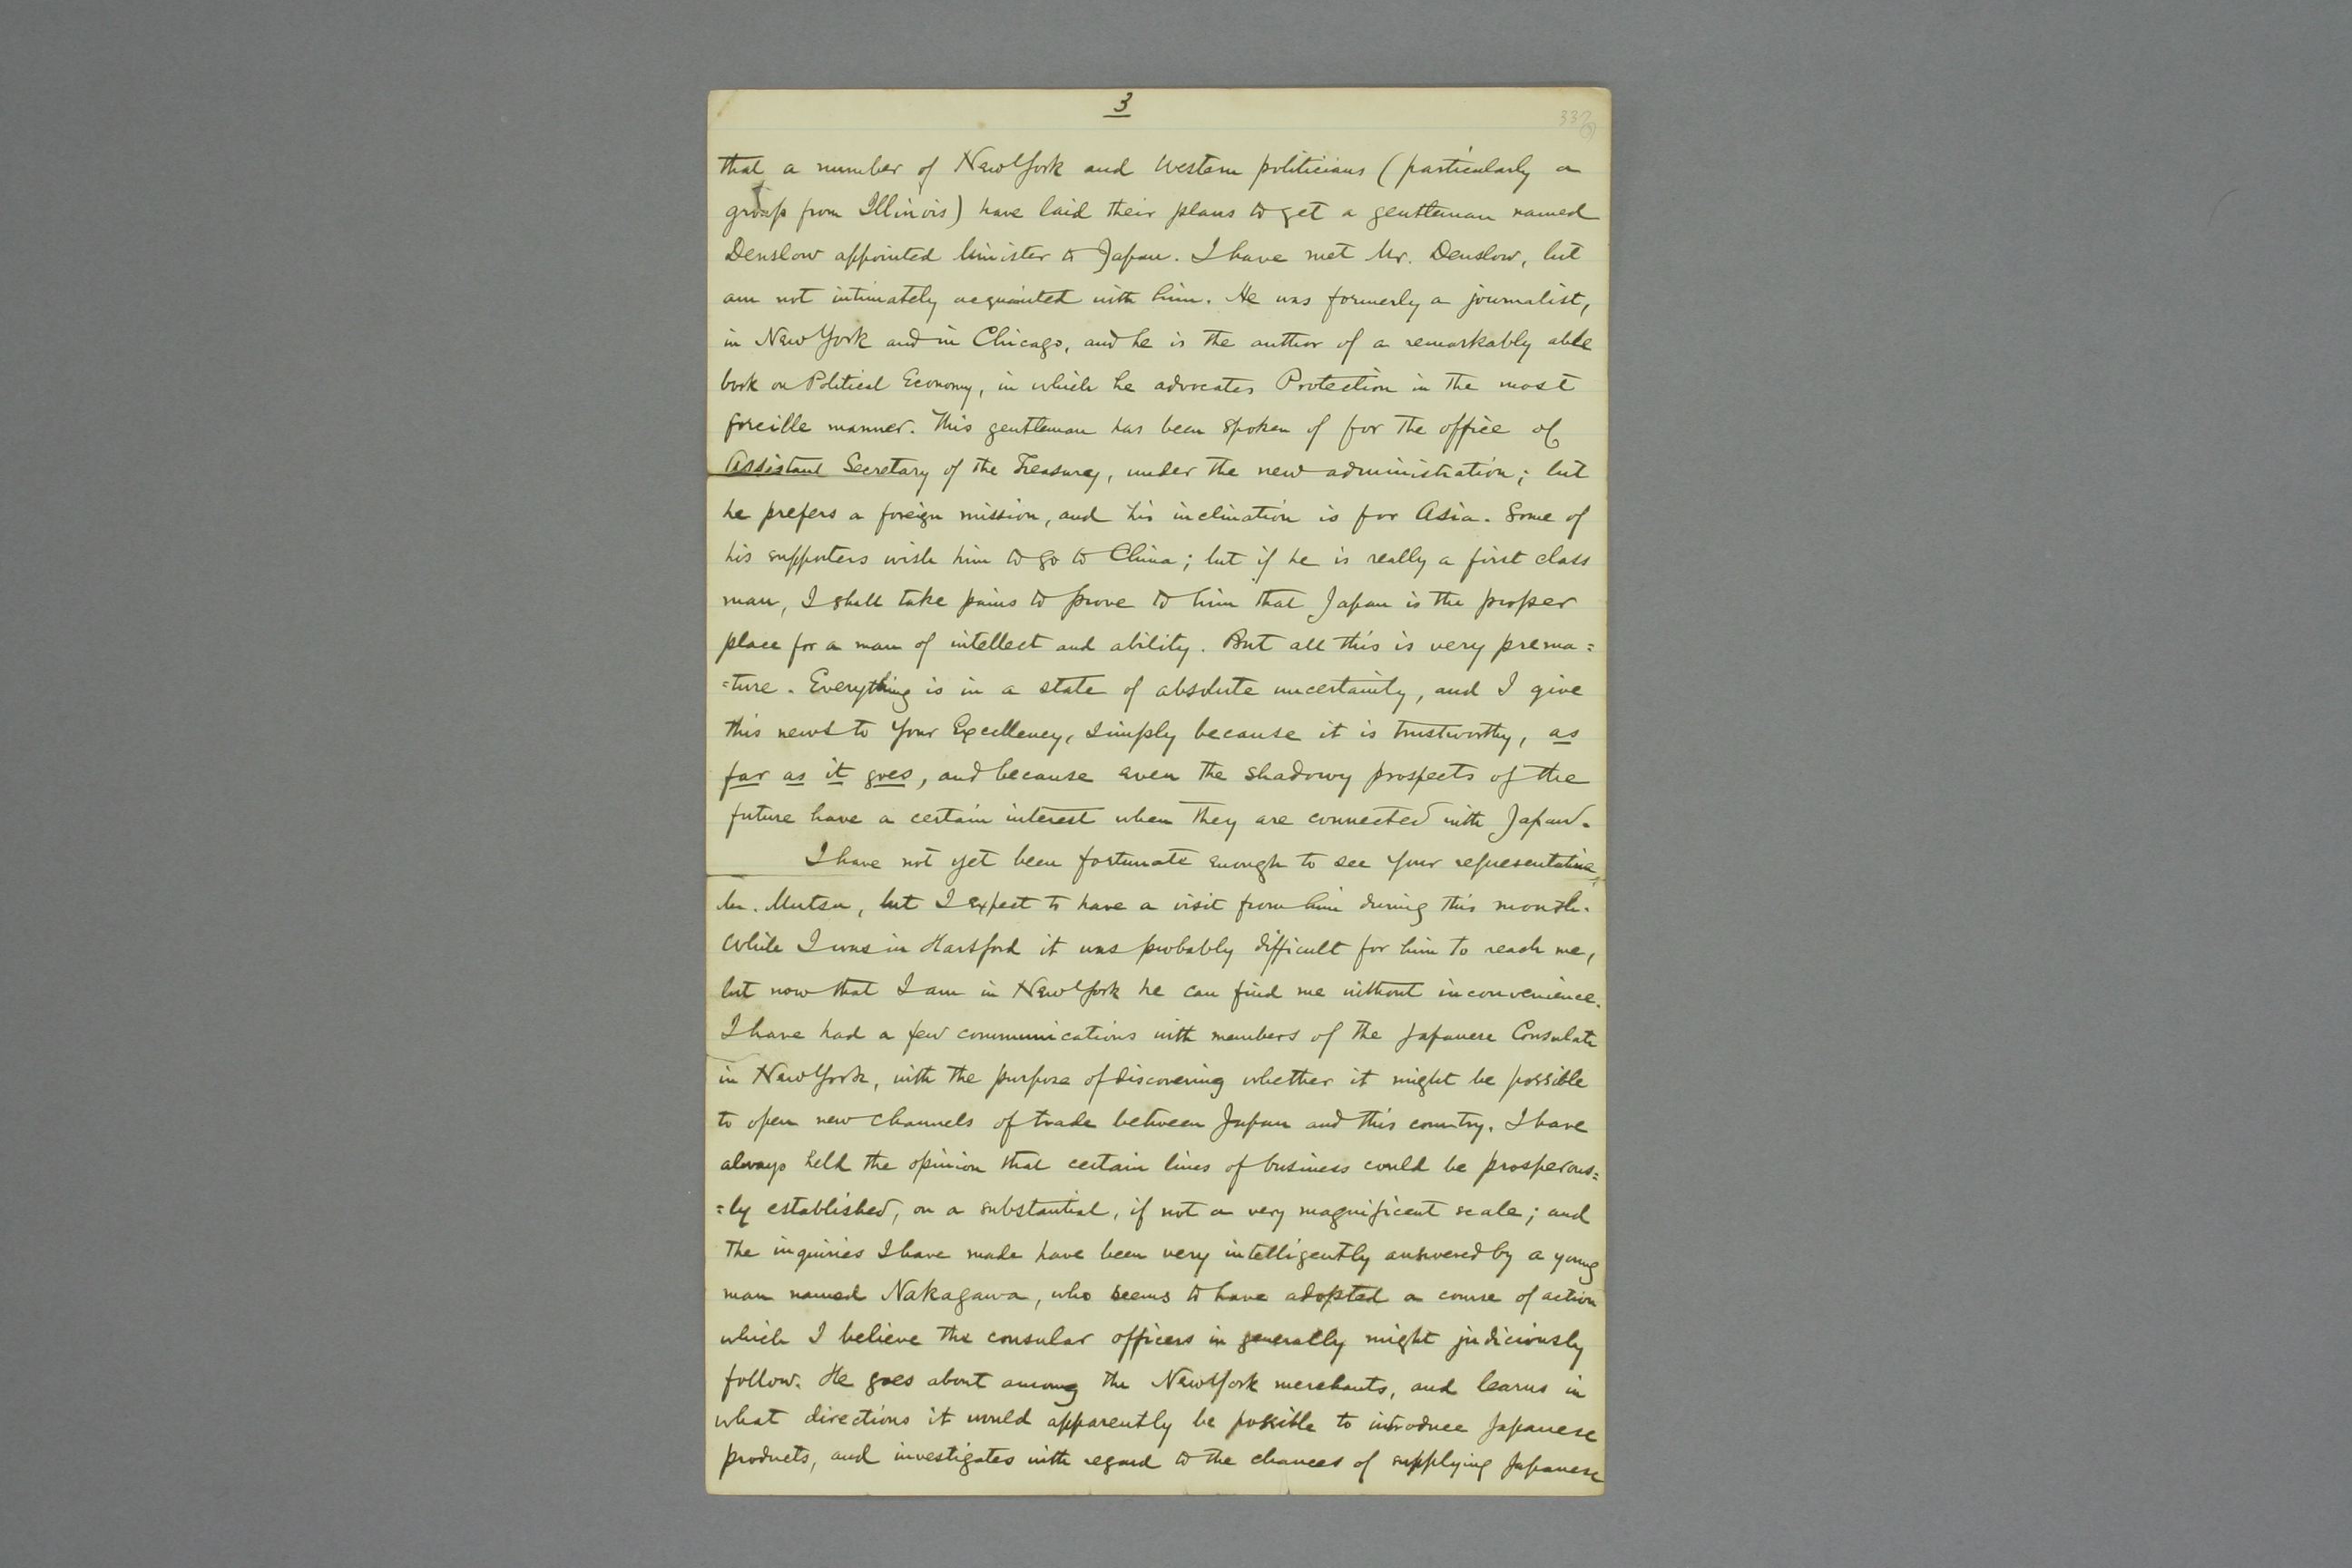 3
that a number of New York and Western politicians (particularly a
group from Illinois) have laid their plans to get a gentleman named
Denslow appointed Minister to Japan. I have met Mr. Denslow, but
am not intimately acquainted with him. He was formerly a journalist,
in New York and in Chicago, and he is the author of a remarkably able
book on Political Economy, in which he advocates Protection in the most
forcible manner. This gentleman has been spoken of for the office of
Assistant Secretary of the Treasury, under the new administration; but
he prefers a foreign mission, and his inclination is for Asia. Some of
his supporters wish him to go to China; but if he is really a first class
man, I shall take pains to prove to him that Japan is the proper
place for a man of intellect and ability. But all this is very prema=
=ture. Everything is in a state of absolute uncertainty, and I give
this news to Your Excellency, simply because it is trustworthy, as
far as it goes, and because even the shadowy prospects of the
future have a certain interest when they are connected with Japan.
I have not yet been fortunate enough to see Your representative,
Mr. Mutsu, but I expect to have a visit from him during this month.
While I was in Hartford it was probably difficult for him to reach me,
but now that I am in New York he can find me without inconvenience.
I have had a few communications with members of the Japanese Consulate
in New York, with the purpose of discovering whether it might be possible
to open new channels of trade between Japan and this country. I have
always held the opinion that certain lines of business could be prosperous=
=ly established, on a substantial, if not a very magnificent scale; and
the inquiries I have made have been very intelligently answered by a young
man named Nakagawa, who seems to have adopted a course of action
which I believe the consular officers in generally might judiciously
follow. He goes about among the New York merchants, and learns in
what directions it would apparently be possible to introduce Japanese
products, and investigates with regard to the chances of supplying Japanese